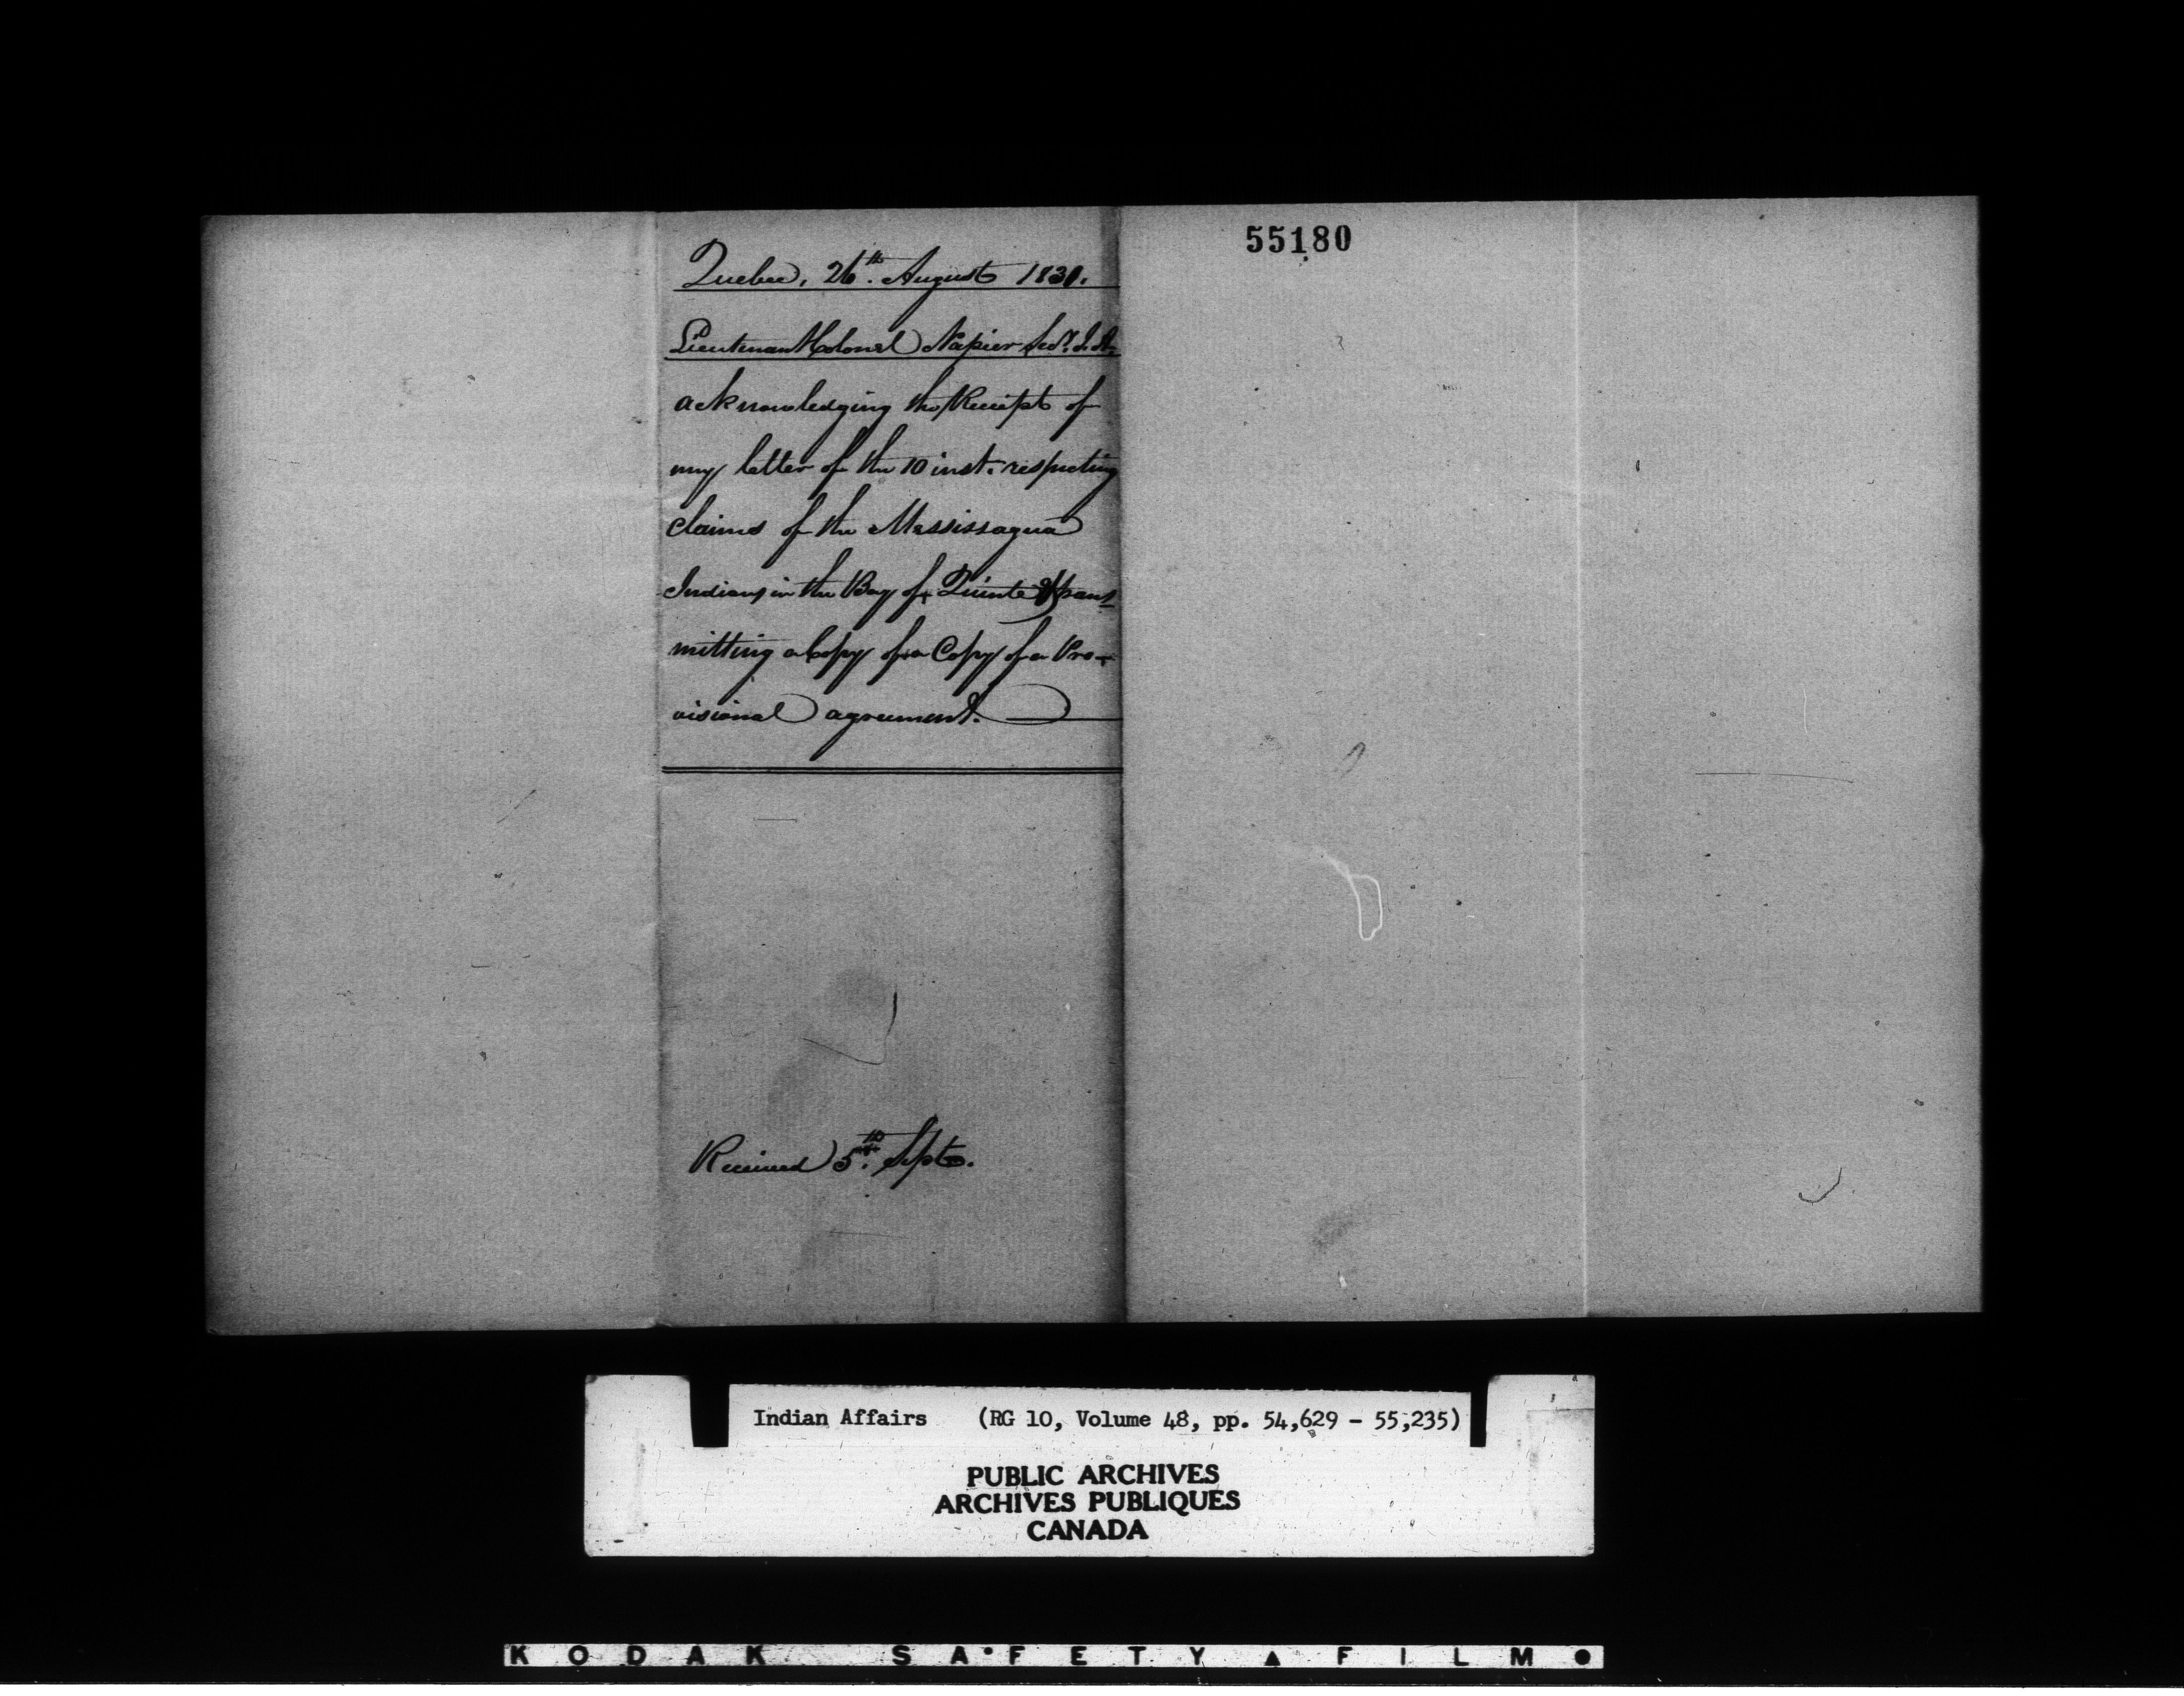 55180
Quebec, 26th. August 1830.
Lieutenant Colonel Napier Secy. I. A.
acknowledging the Receipt of
my letter of the 10 inst. respecting
claims of the Mississagua
Indians in the Bay of Quinte & trans
mitting a Copy of a Copy of a Pro-
visional agreement.
Received 5th. Septr.
Indian Affairs (RG 10, Volume 48, pp. 54,629 - 55,235)
PUBLIC ARCHIVES
ARCHIVES PUBLIQUES
CANADA
KODAK SAFETY FILM